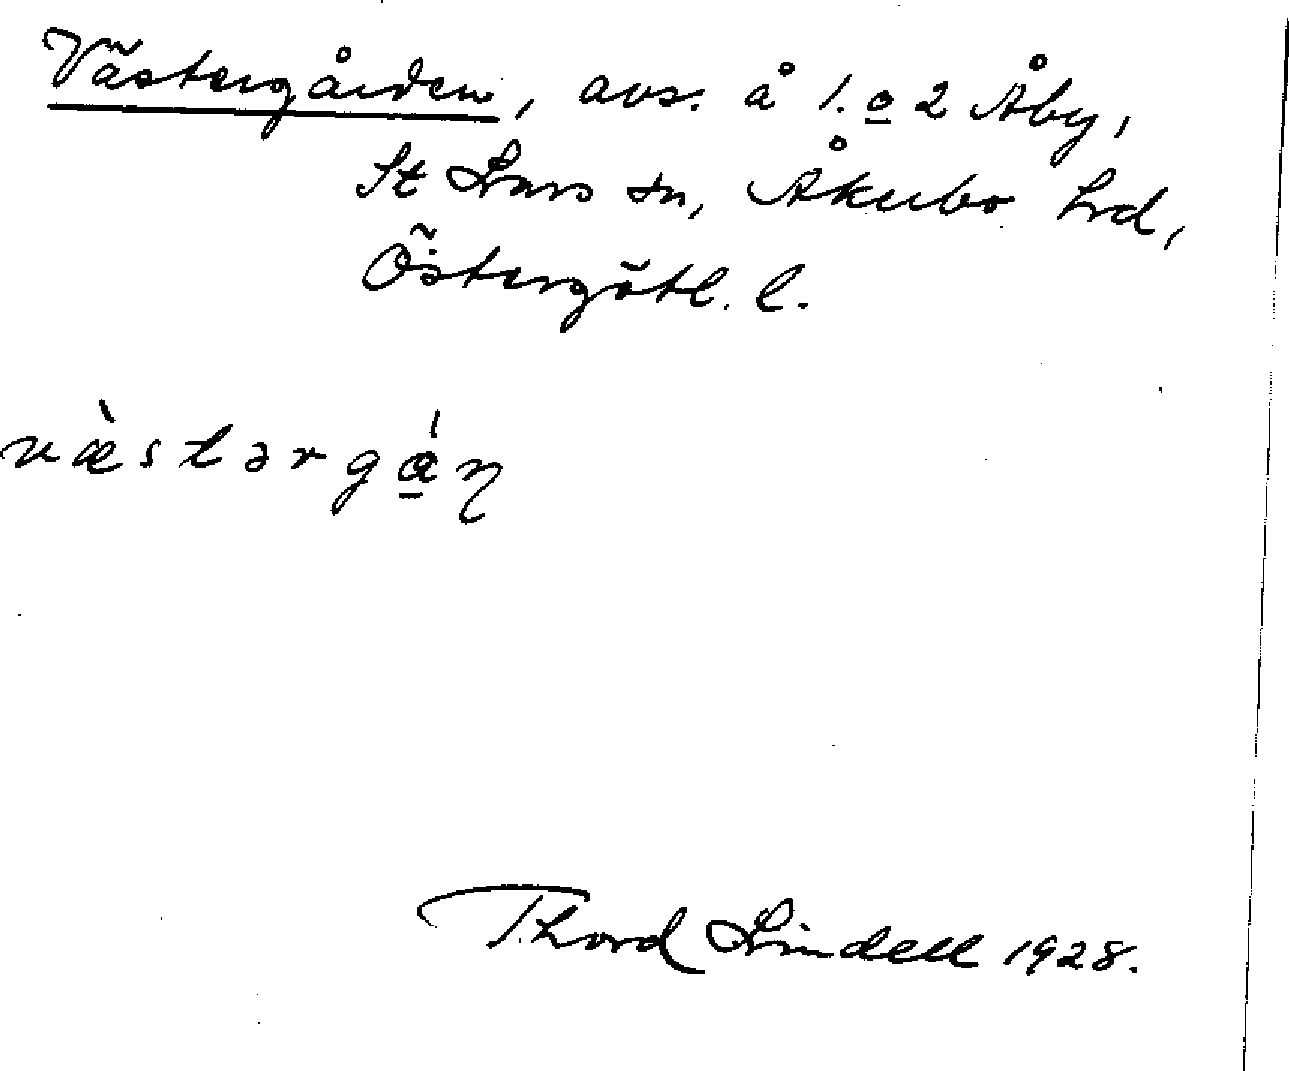 Västergården, avs. å 1. o 2 Åby,
St Lars sn, Åkerbo hd,
Östergötl. l.
væ̀stərgá̱ɳ
Thord Lindell 1928.